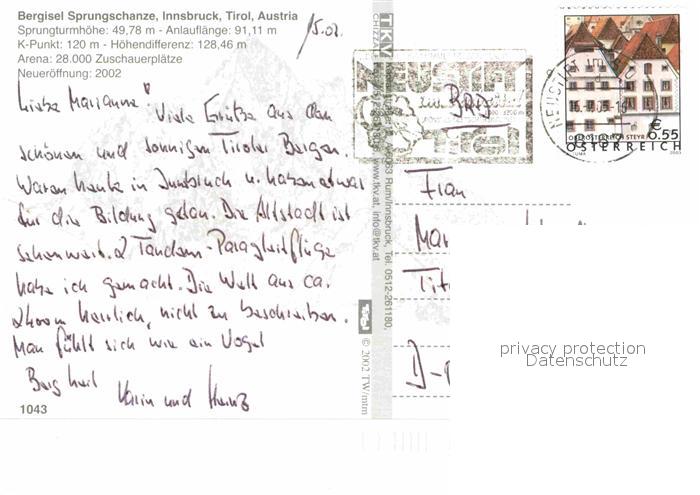 Bergisel Sprungschanze, Innsbruck, Tirol, Austria
Sprungturmhöhe: 49,78 m - Anlauflänge: 91,11 m
K-Punkt: 120 m - Höhendifferenz: 128,46 m
Arena: 28.000 Zuschauerplätze
Neueröffnung: 2002
15.02.
Liebe Marianne!
Viele Grüße aus den
schönen und sonnigen Tiroler Bergen.
Waren heute in Innsbruck u. haben etwas
für die Bildung getan. Die Altstadt ist
sehenswert. 2 Tandem-Paragleitflüge
habe ich gemacht. Die Welt aus ca.
2400m herrlich, nicht zu beschreiben.
Man fühlt sich wie ein Vogel
Berg heil
Karin und Heinz
1043
TKV
Rum/Innsbruck, Tel. 0512-261180,
www.tkv.at, info@tkv.at
Tirol
© 2002 TW/mtm
NEUSTIFT
Tirol
BRD
OBERÖSTERREICH STEYR
€ 0.55
ÖSTERREICH
Frau
Mar
Tit
D-
privacy protection
Datenschutz